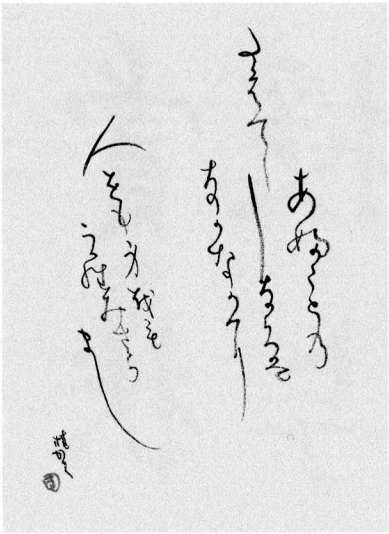 あふことの
たえてしなくは
なかなかに
人をも身をも
うらみさらまし